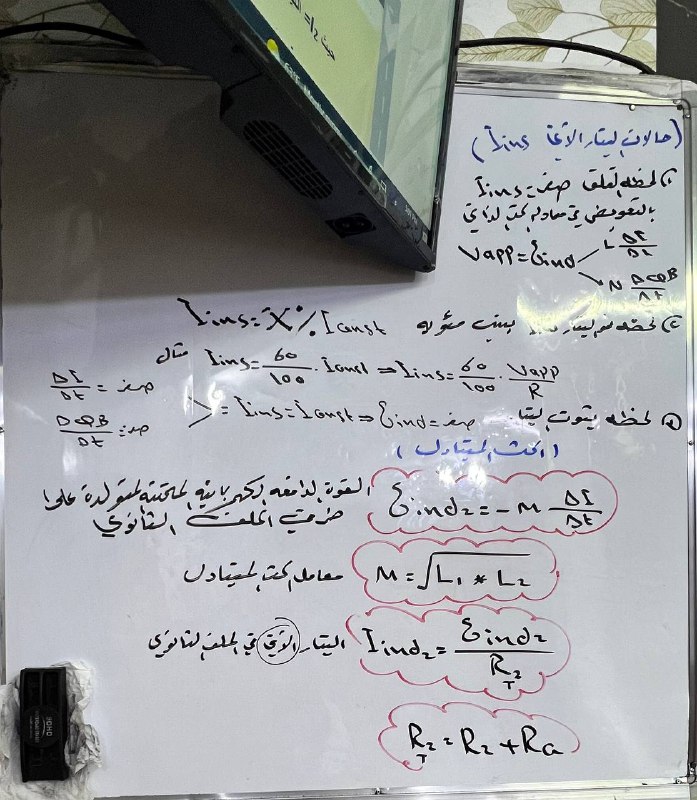 حيث L2=
(حالات التيار الآني Iins)
① لحظة الغلق صفر = Iins
بالتعويض في معادلة الحث الذاتي
Vapp = Ɛind L ΔI/Δt
N ΔΦB/Δt
② لحظة نمو التيار بنسب مئوية Iins = X% Iconst
مثال Iins = 60/100 . Iconst ⇒ Iins = 60/100 . Vapp/R
③ لحظة ثبوت التيار صفر = Iins = Iconst ⇒ Ɛind
ΔI/Δt = صفر
ΔΦB/Δt = صفر
(الحث المتبادل)
Ɛind2 = -M ΔI/Δt القوة الدافعة الكهربائية المحتثة المتولدة على
طرفي الملف الثانوي
M = √L1 * L2 معامل الحث المتبادل
Iind2 = Ɛind2/R2T التيار الآني في الملف الثانوي
R2T = R2 + Ra